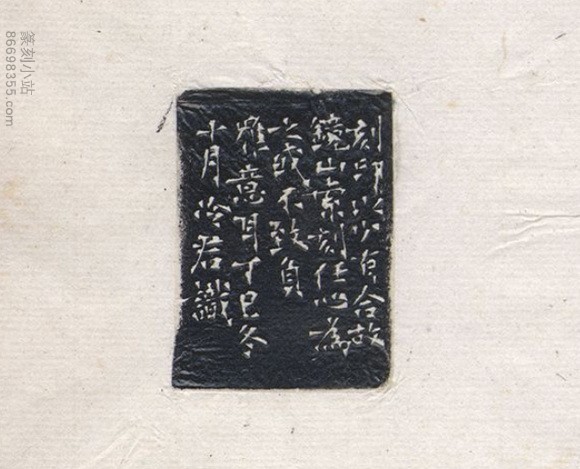 刻印少有合故
鏡山索刻任心為
之或不致負
雅意耳丁巳冬
十月冷君識
篆刻小站
86698355.com